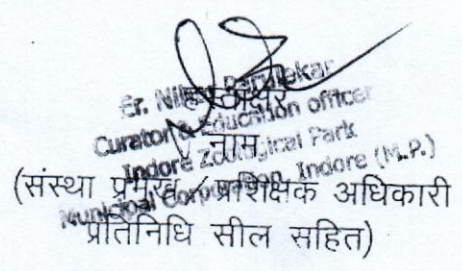 हस्ताक्षर
Er. Nilesh Parulekar
Curator & Education officer
नाम
Indore Zoological Park
Municipal Corporation, Indore (M.P.)
(संस्था प्रमुख / प्रशिक्षक अधिकारी
प्रतिनिधि सील सहित)